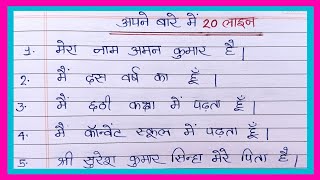 अपने बारे में 20 लाइन
1. मेरा नाम अमन कुमार है |
2. मैं दस वर्ष का हूँ |
3. मैं छठी कक्षा में पढ़ता हूँ |
4. मै कॉन्वेंट स्कूल में पढ़ता हूँ |
5. श्री सुरेश कुमार सिन्हा मेरे पिता है |